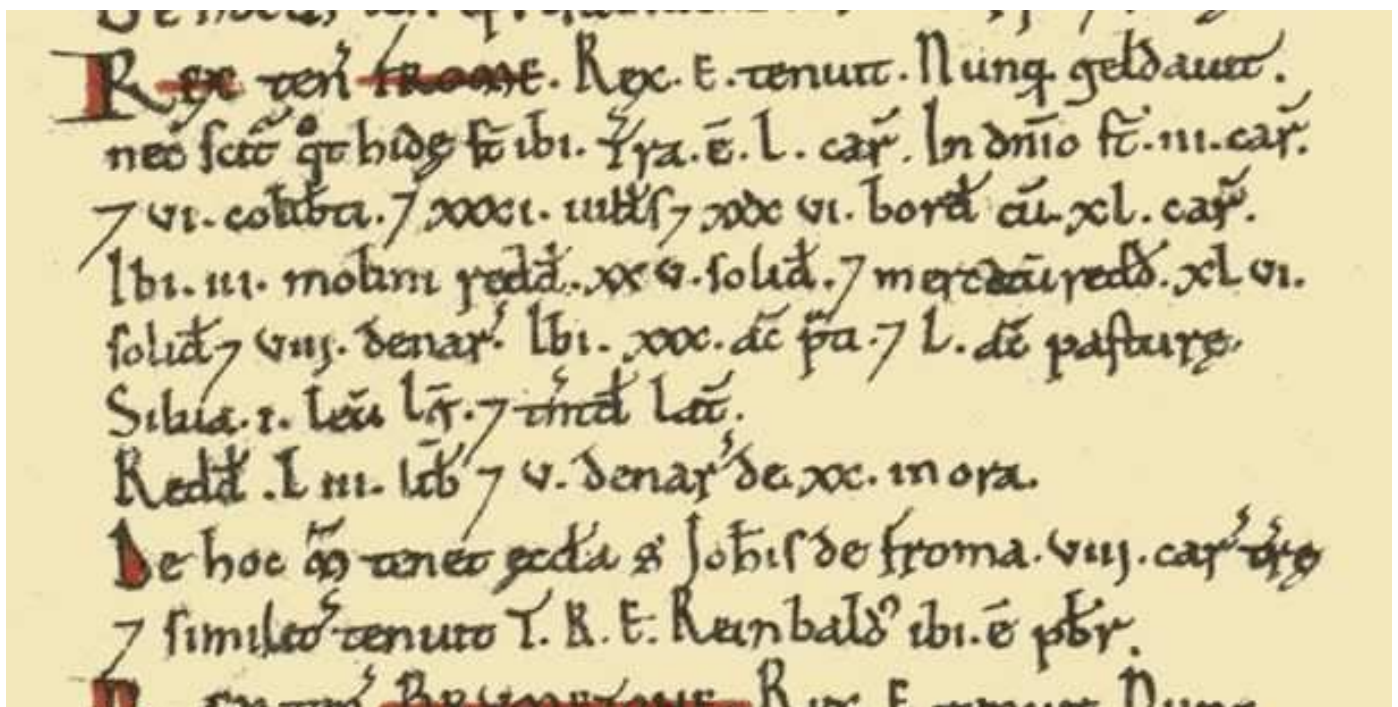 REX teñ FROME. Rex. E. tenuit. Nunq̃ geldauit.
nec̃ scit̃ qͦt hidę st̃ ibi. T̃ra. ē. L. car̃. In dñio st̃. iii. car̃.
⁊ vi. coliƀti. ⁊ xxxi. uilłs ⁊ xxx vi. borđ cū. xl. car̃.
Ibi. iii. molini redđ. xx v. soliđ. ⁊ mercatū redđ. xl vi.
soliđ ⁊ viij. denar̃. Ibi. xxx. ac̃ p̃ti. ⁊ L. ac̃ pasturę.
Silua. i. leuũ lḡ. ⁊ tñtđ lat̃.
Redđ. L iii. liƀ ⁊ v. denar̃ de. xx. in ora.
De hoc m̃ tenet ęccła S Joħis de froma. viij. car̃ t̃rę
⁊ similit̃ tenuit T. R. E. Reinbalđ ibi. ē pƀr.